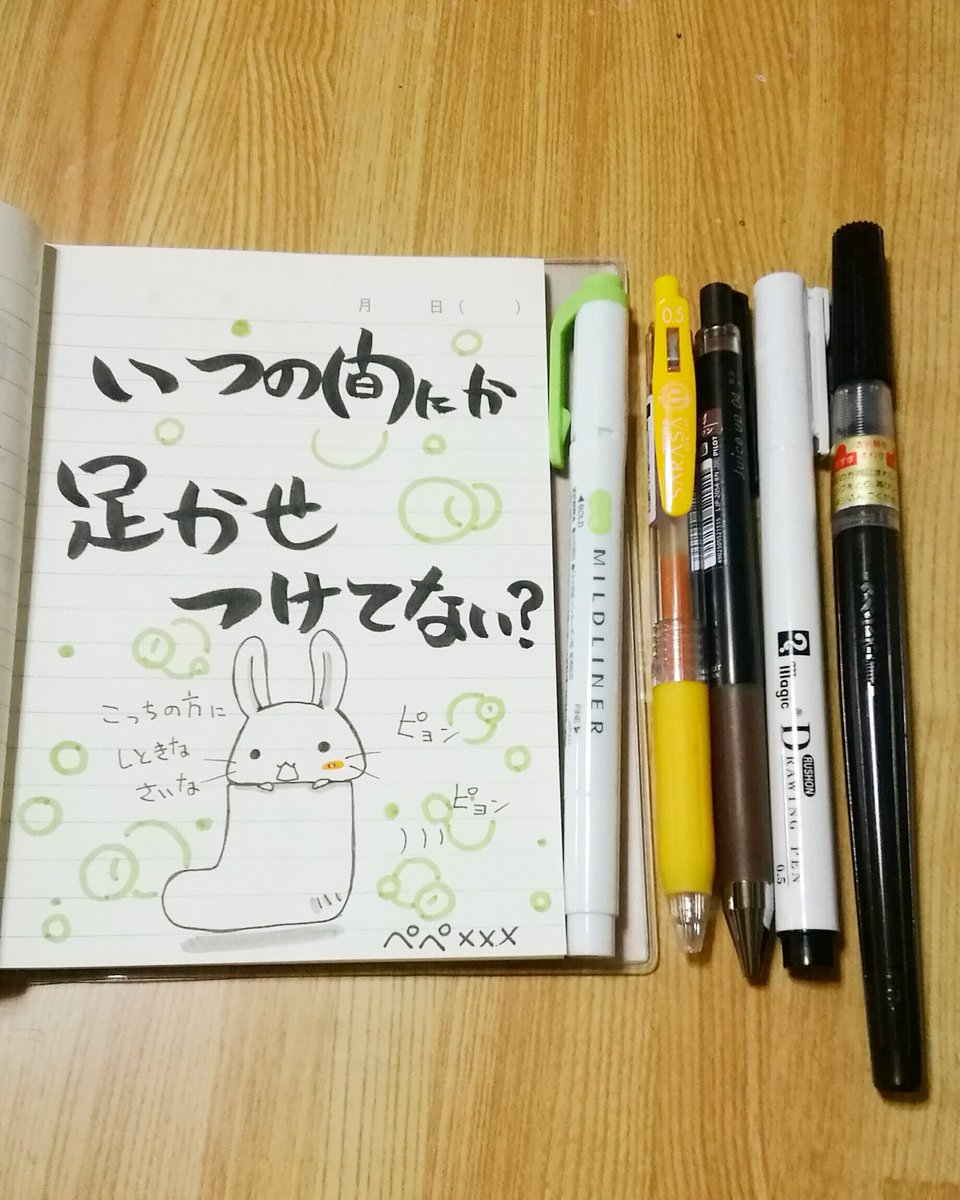 月　日(　)
いつの間にか
足かせ
つけてない?
こっちの方に
しときな
さいな
ピョン
ピョン
ペペ×××
BOLD
MILDLINER
FINE
0.5
SAKASA
Juice up 04
PILOT
LJP-20S4-BN
magic
DRAWING PEN
RUSHON
0.5